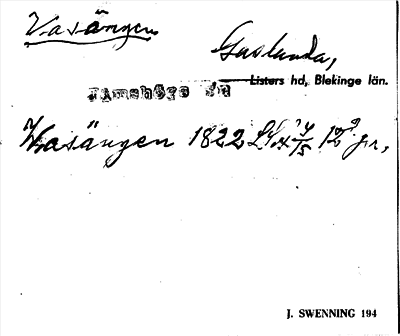 Vasängen
Gustunda,
Listers hd, Blekinge län.
Jämshögs sn
Wasängen 1822
J. SWENNING 194